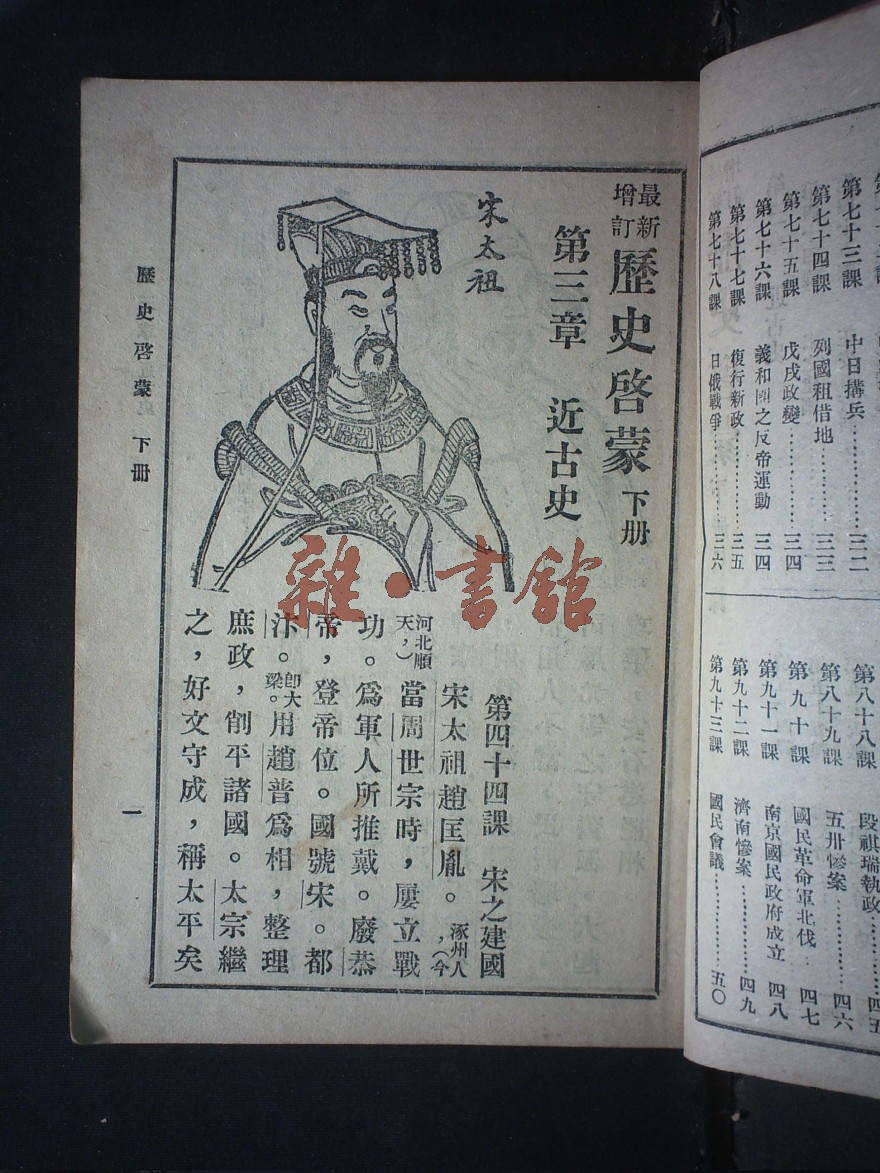 第七十三課 中日搆兵…………三二
第七十四課 列國租借地…………三三
第七十五課 戊戌政變…………三四
第七十六課 義和團之反帝運動 三四
第七十七課 復行新政…………三五
第七十八課 日俄戰爭…………三六
第八十八課 段祺瑞執政…………四五
第八十九課 五卅慘案…………四六
第九十課 國民革命軍北伐…四七
第九十一課 南京國民政府成立 四八
第九十二課 濟南慘案…………四九
第九十三課 國民會議…………五〇
最新增訂 歷史啓蒙 下册
第三章 近古史
宋太祖
第四十四課 宋之建國
宋太祖趙匡胤。涿州人,(今
河北順天,)當周世宗時,屢立戰
功。爲軍人所推戴。廢恭
帝,登帝位。國號宋。都
汴。卽大梁。用趙普爲相,整理
庶政,削平諸國。太宗繼
之,好文守成,稱太平矣
歷史啓蒙 下册
一
雜·書館